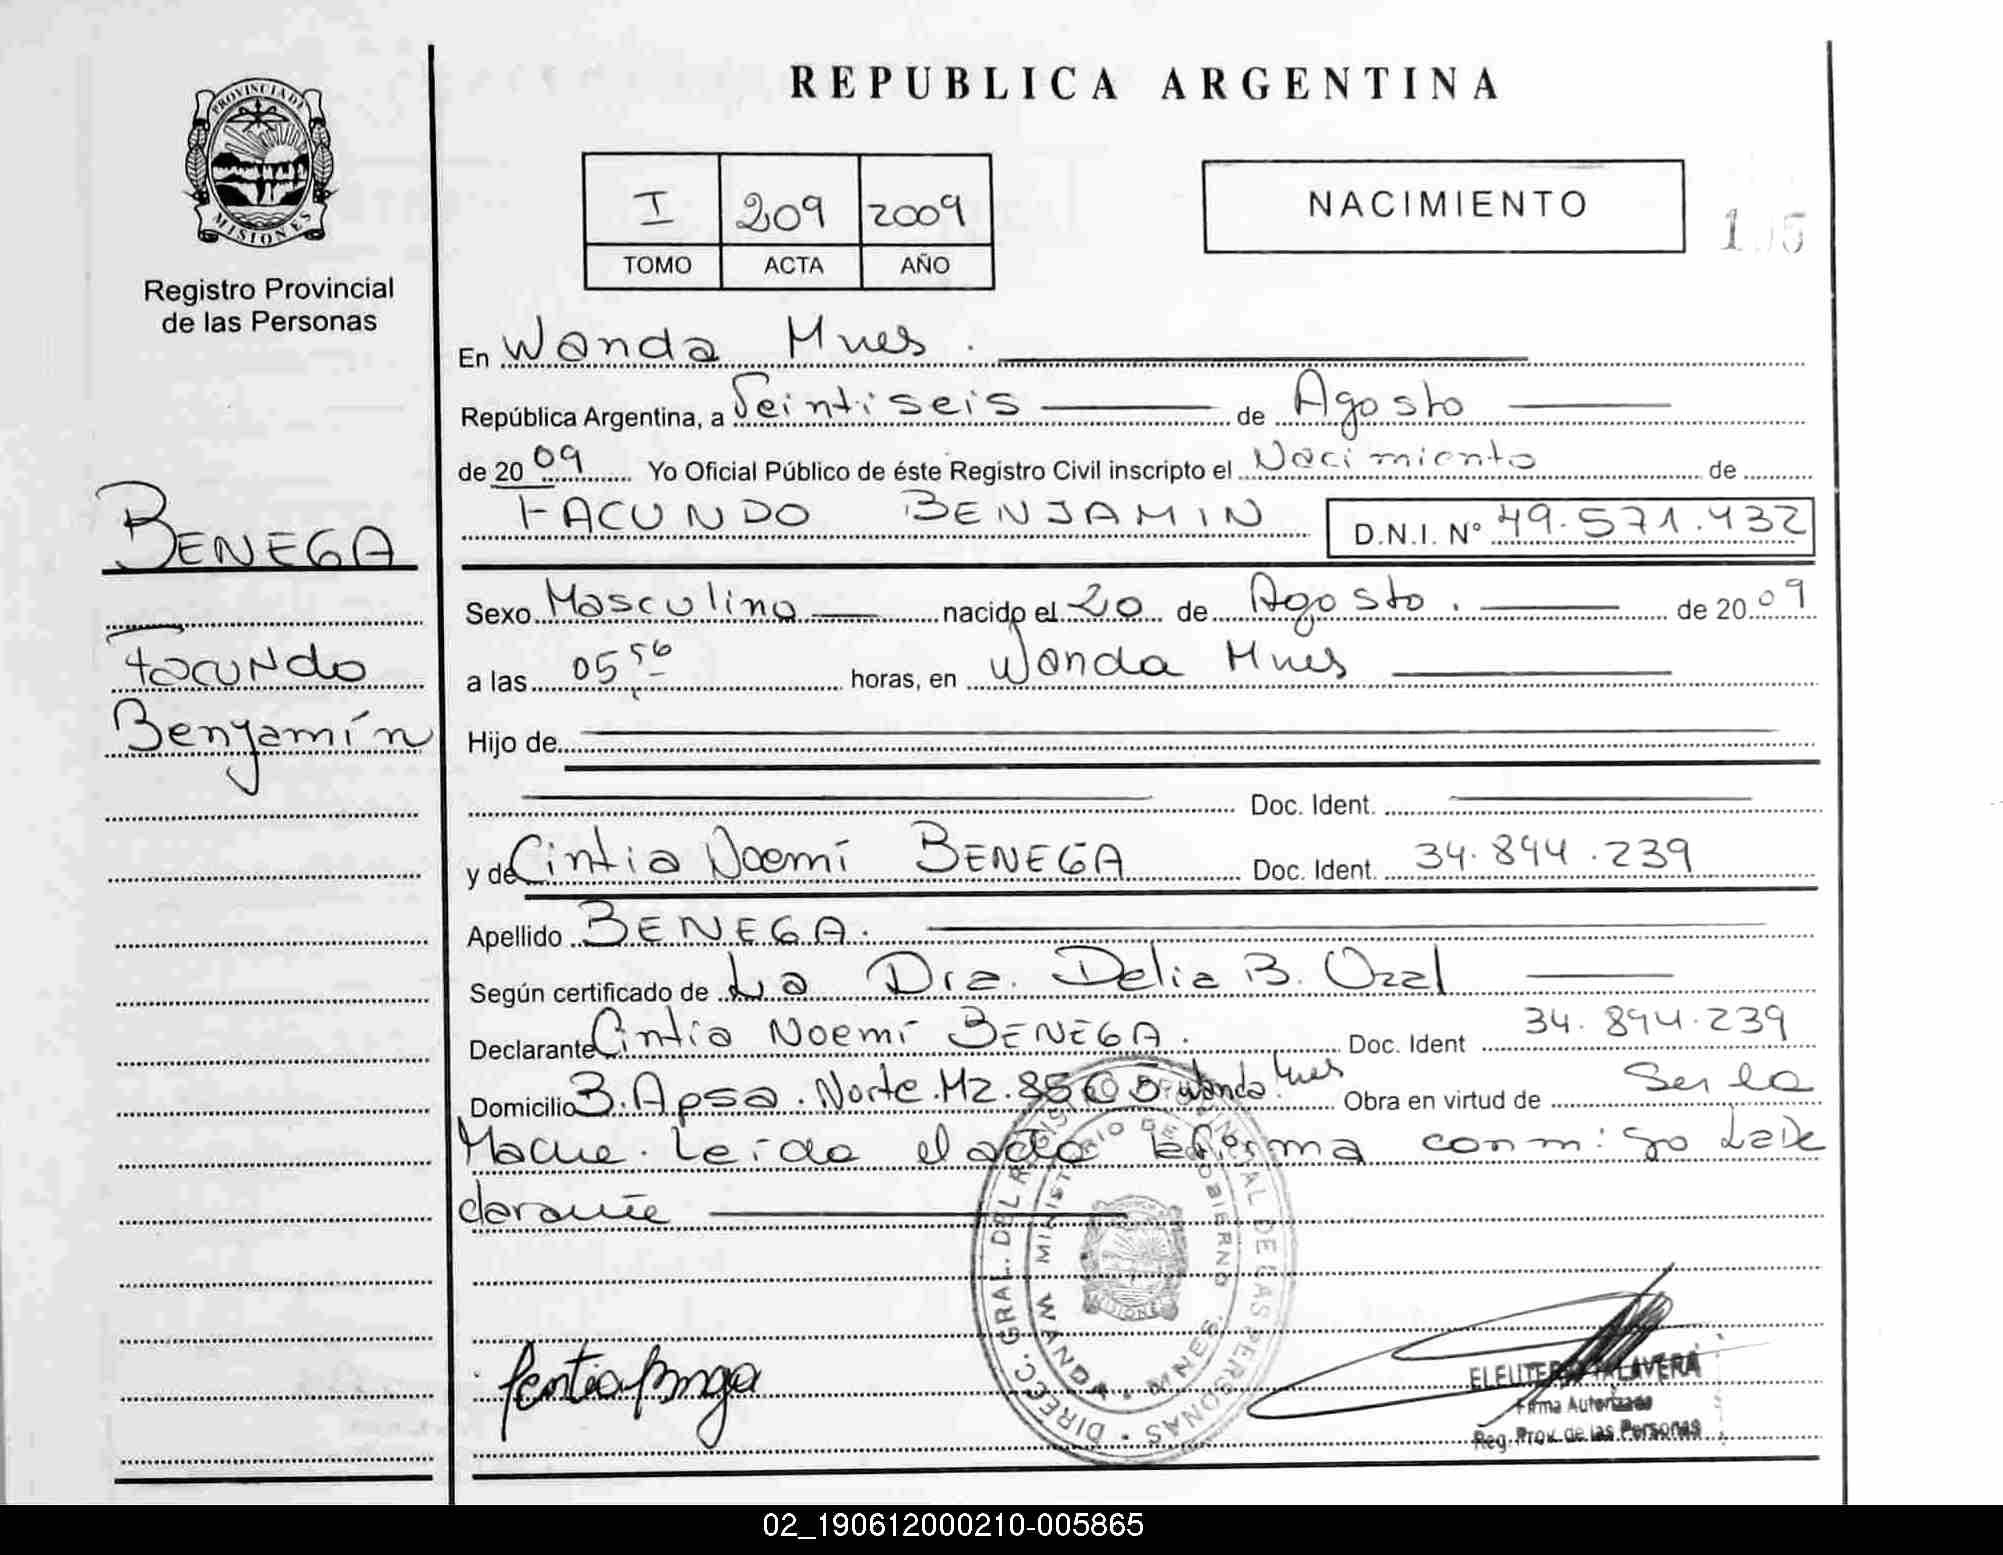 REPUBLICA ARGENTINA
PROVINCIA DE
MISIONES
Registro Provincial
de las Personas
I 209 2009
TOMO ACTA AÑO
NACIMIENTO
En Wanda Mnes.
República Argentina, a Veintiseis de Agosto
de 2009 Yo Oficial Público de éste Registro Civil inscripto el Nacimiento de
FACUNDO BENJAMIN D.N.I. Nº 49.571.432
BENEGA
Facundo
Benjamín
Sexo Masculino nacido el 20 de Agosto. de 2009
a las 05 56 horas, en Wanda Mnes
Hijo de
Doc. Ident.
y de Cintia Noemí BENEGA Doc. Ident. 34.894.239
Apellido BENEGA.
Según certificado de La Dra. Delia B.
Declarante Cintia Noemí BENEGA. Doc. Ident 34.894.239
Domicilio B. Apsa. Norte. Mz. Wanda Mnes Obra en virtud de Ser la
Madre. Leída el acta la firma conmigo La De
clarante
DIRECC. GRAL. DEL REGISTRO PROVINCIAL DE LAS PERSONAS
MINISTERIO DE GOBIERNO
WANDA - MNES.
MISIONES
ELEUTERIO TALAVERA
Firma Autorizada
Reg. Prov. de las Personas
02_190612000210-005865